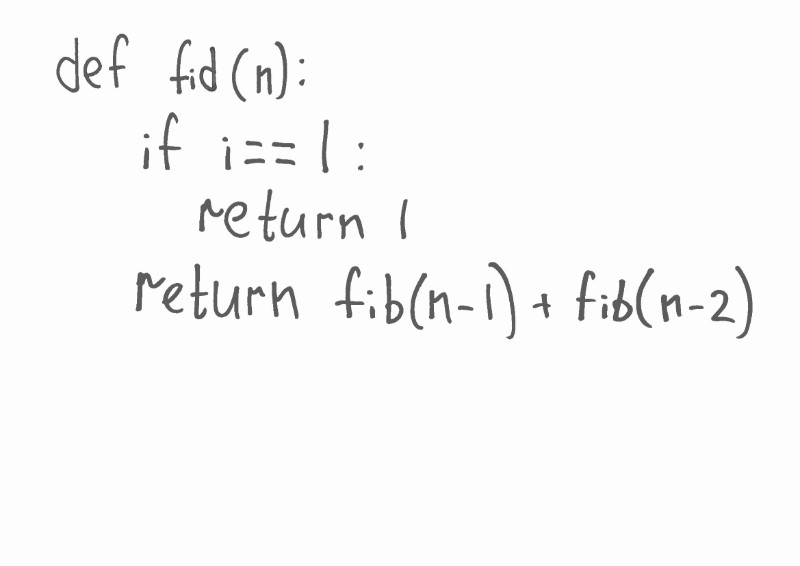 def fid(n):
if i == 1:
return 1
return fib(n-1) + fib(n-2)